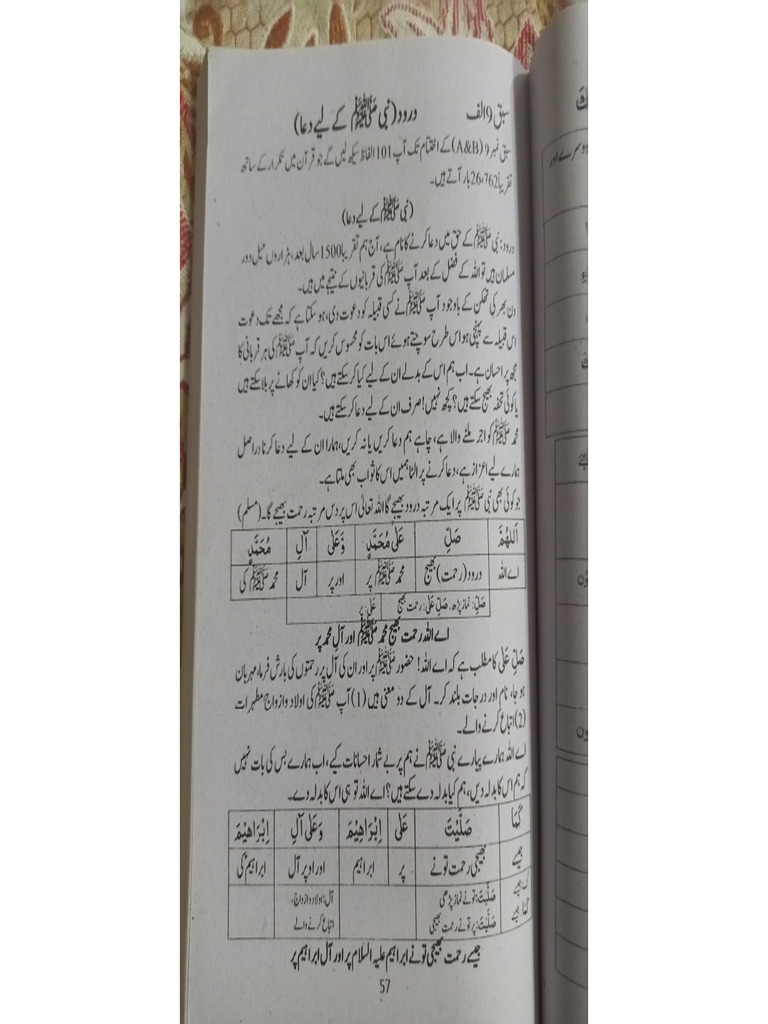 سبق 9 الف درود (نبی ﷺ کے لیے دعا)
سبق نمبر 9 (A&B) کے اختتام تک آپ 101 الفاظ سیکھ لیں گے جو قرآن میں تکرار کے ساتھ
تقریباً 26,762 بار آتے ہیں۔
(نبی ﷺ کے لیے دعا)
درود: نبی ﷺ کے حق میں دعا کرنے کا نام ہے، آج ہم تقریباً 1500 سال بعد، ہزاروں میل دور
مسلمان ہیں تو اللہ کے فضل کے بعد آپ ﷺ کی قربانیوں کے نتیجے میں ہیں۔
دن بھر کی تھکن کے باوجود آپ ﷺ نے کسی قبیلہ کو دعوت دی، ہو سکتا ہے کہ مجھے تک دعوت
اس قبیلہ سے پہنچی ہو اس طرح سوچتے ہوئے اس بات کو محسوس کریں کہ آپ ﷺ کی ہر قربانی کا
مجھ پر احسان ہے۔ اب ہم اس کے بدلے ان کے لیے کیا کر سکتے ہیں؟ کیا ان کو کھانے پر بلا سکتے ہیں
یا کوئی تحفہ بھیج سکتے ہیں؟ کچھ نہیں! صرف ان کے لیے دعا کر سکتے ہیں۔
محمد ﷺ کو اجر ملنے والا ہے، چاہے ہم دعا کریں یا نہ کریں، ہمارا ان کے لیے دعا کرنا دراصل
ہمارے لیے اعزاز ہے، دعا کرنے پر الٹا ہمیں اس کا ثواب بھی ملتا ہے۔
جو کوئی بھی نبی ﷺ پر ایک مرتبہ درود بھیجے گا اللہ تعالیٰ اس پر دس مرتبہ رحمت بھیجے گا۔ (مسلم)
اَللهُمَّ صَلِّ عَلٰى مُحَمَّدٍ وَّعَلٰى آلِ مُحَمَّدٍ
اے اللہ درود (رحمت) بھیج محمد ﷺ پر اور پر آل محمد ﷺ کی
صَلِّ: نماز پڑھ۔ صَلِّ عَلٰى: رحمت بھیج عَلٰى: پر
اے اللہ رحمت بھیج محمد ﷺ اور آلِ محمد پر
صَلِّ عَلٰى کا مطلب ہے کہ اے اللہ! حضور ﷺ پر اور ان کی آل پر رحمتوں کی بارش فرما، مہربان
ہو جا، نام اور درجات بلند کر۔ آل کے دو معنی ہیں (1) آپ ﷺ کی اولاد و ازواج مطہرات
(2) اتباع کرنے والے۔
اے اللہ ہمارے پیارے نبی ﷺ نے ہم پر بے شمار احسانات کیے، اب ہمارے بس کی بات نہیں
کہ ہم اس کا بدلہ دیں، ہم کیا بدلہ دے سکتے ہیں؟ اے اللہ تو ہی اس کا بدلہ دے۔
كَمَا صَلَّيْتَ عَلٰى اِبْرَاهِيْمَ وَعَلٰى آلِ اِبْرَاهِيْمَ
جیسے بھیجی رحمت تونے پر ابراہیم اور اوپر آل ابراہیم کی
صَلَّيْتَ: تونے نماز پڑھی آل: اولاد و ازواج،
صَلَّيْتَ: پر تونے رحمت بھیجی اتباع کرنے والے
جیسے رحمت بھیجی تونے ابراہیم علیہ السلام پر اور آل ابراہیم پر
57